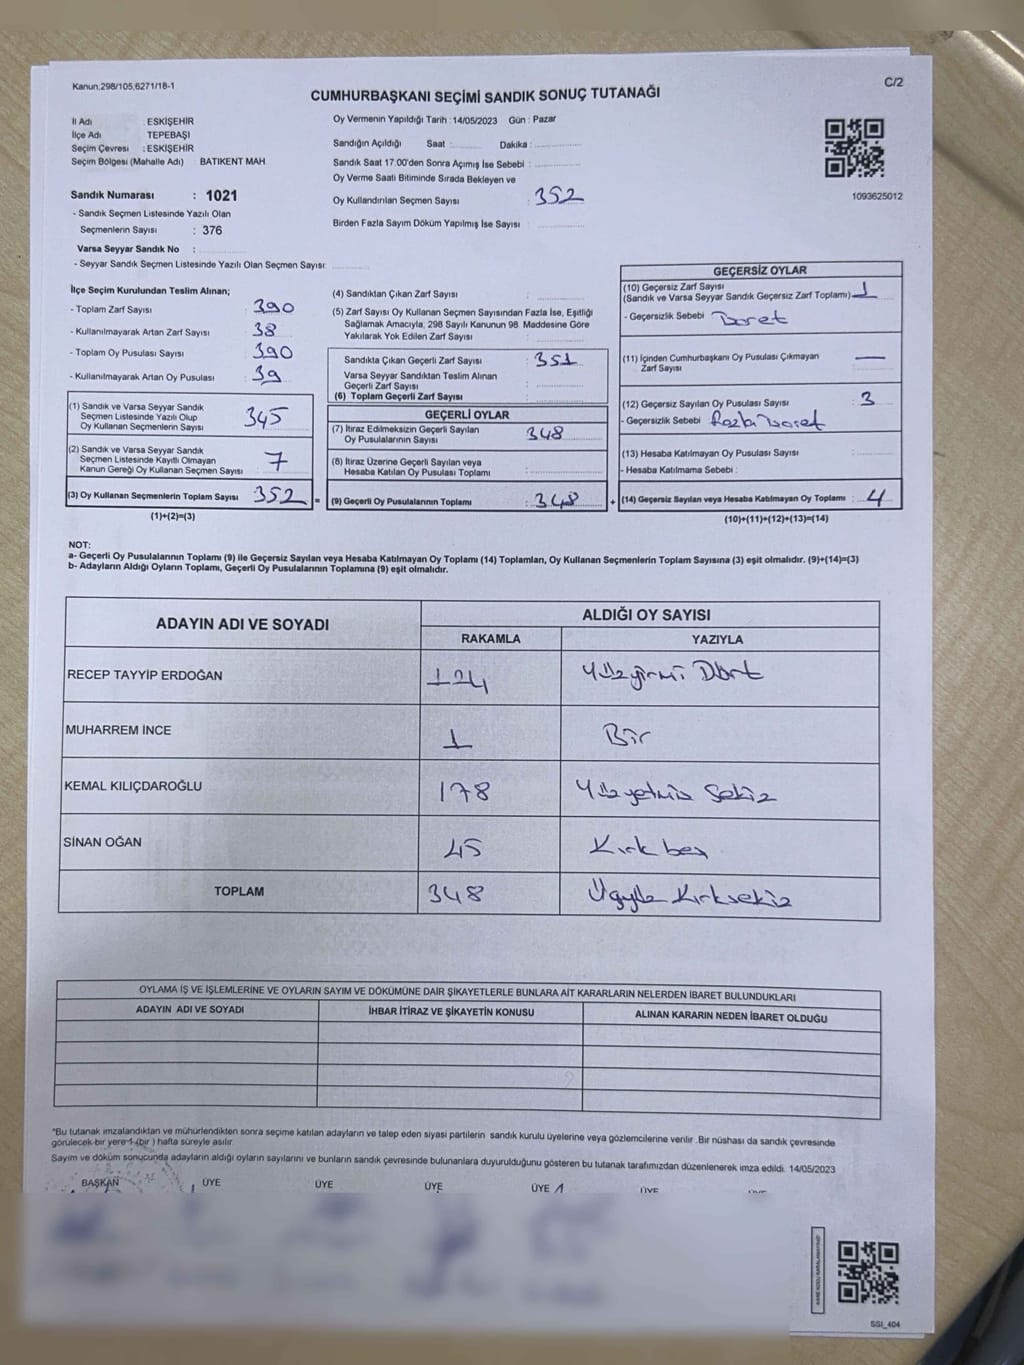 Kanun;298/105,6271/18-1
C/2
CUMHURBAŞKANI SEÇİMİ SANDIK SONUÇ TUTANAĞI
İl Adı : ESKİŞEHİR
İlçe Adı : TEPEBAŞI
Seçim Çevresi : ESKİŞEHİR
Seçim Bölgesi (Mahalle Adı) : BATIKENT MAH
Sandık Numarası : 1021
- Sandık Seçmen Listesinde Yazılı Olan
Seçmenlerin Sayısı : 376
Varsa Seyyar Sandık No :
- Seyyar Sandık Seçmen Listesinde Yazılı Olan Seçmen Sayısı:
Oy Vermenin Yapıldığı Tarih : 14/05/2023 Gün : Pazar
Sandığın Açıldığı Saat : Dakika :
Sandık Saat 17:00'den Sonra Açımış İse Sebebi :
Oy Verme Saati Bitiminde Sırada Bekleyen ve
Oy Kullandırılan Seçmen Sayısı : 352
Birden Fazla Sayım Döküm Yapılmış İse Sayısı :
1093625012
İlçe Seçim Kurulundan Teslim Alınan;
- Toplam Zarf Sayısı : 390
- Kullanılmayarak Artan Zarf Sayısı : 38
- Toplam Oy Pusulası Sayısı : 390
- Kullanılmayarak Artan Oy Pusulası : 39
(1) Sandık ve Varsa Seyyar Sandık
Seçmen Listesinde Yazılı Olup
Oy Kullanan Seçmenlerin Sayısı 345
(2) Sandık ve Varsa Seyyar Sandık
Seçmen Listesinde Kayıtlı Olmayan
Kanun Gereği Oy Kullanan Seçmen Sayısı 7
(3) Oy Kullanan Seçmenlerin Toplam Sayısı : 352 =
(1)+(2)=(3)
(4) Sandıktan Çıkan Zarf Sayısı :
(5) Zarf Sayısı Oy Kullanan Seçmen Sayısından Fazla İse, Eşitliği
Sağlamak Amacıyla, 298 Sayılı Kanunun 98. Maddesine Göre
Yakılarak Yok Edilen Zarf Sayısı :
Sandıkta Çıkan Geçerli Zarf Sayısı : 351
Varsa Seyyar Sandıktan Teslim Alınan
Geçerli Zarf Sayısı :
(6) Toplam Geçerli Zarf Sayısı :
GEÇERLİ OYLAR
(7) İtiraz Edilmeksizin Geçerli Sayılan
Oy Pusulalarının Sayısı : 348
(8) İtiraz Üzerine Geçerli Sayılan veya
Hesaba Katılan Oy Pusulası Toplamı :
(9) Geçerli Oy Pusulalarının Toplamı : 348 +
GEÇERSİZ OYLAR
(10) Geçersiz Zarf Sayısı
(Sandık ve Varsa Seyyar Sandık Geçersiz Zarf Toplamı) 1
- Geçersizlik Sebebi :
(11) İçinden Cumhurbaşkanı Oy Pusulası Çıkmayan
Zarf Sayısı : —
(12) Geçersiz Sayılan Oy Pusulası Sayısı : 3
- Geçersizlik Sebebi :
(13) Hesaba Katılmayan Oy Pusulası Sayısı :
- Hesaba Katılmama Sebebi :
(14) Geçersiz Sayılan veya Hesaba Katılmayan Oy Toplamı : 4
(10)+(11)+(12)+(13)=(14)
NOT:
a- Geçerli Oy Pusulalarının Toplamı (9) ile Geçersiz Sayılan veya Hesaba Katılmayan Oy Toplamı (14) Toplamları, Oy Kullanan Seçmenlerin Toplam Sayısına (3) eşit olmalıdır. (9)+(14)=(3)
b- Adayların Aldığı Oyların Toplamı, Geçerli Oy Pusulalarının Toplamına (9) eşit olmalıdır.
ADAYIN ADI VE SOYADI ALDIĞI OY SAYISI
RAKAMLA YAZIYLA
RECEP TAYYİP ERDOĞAN 124 Yüzyirmi Dört
MUHARREM İNCE 1 Bir
KEMAL KILIÇDAROĞLU 178 Yüzyetmiş Sekiz
SİNAN OĞAN 45 Kırk beş
TOPLAM 348 Üçyüz Kırksekiz
OYLAMA İŞ VE İŞLEMLERİNE VE OYLARIN SAYIM VE DÖKÜMÜNE DAİR ŞİKAYETLERLE BUNLARA AİT KARARLARIN NELERDEN İBARET BULUNDUKLARI
ADAYIN ADI VE SOYADI İHBAR İTİRAZ VE ŞİKAYETİN KONUSU ALINAN KARARIN NEDEN İBARET OLDUĞU
*Bu tutanak imzalandıktan ve mühürlendikten sonra seçime katılan adayların ve talep eden siyasi partilerin sandık kurulu üyelerine veya gözlemcilerine verilir .Bir nüshası da sandık çevresinde
görülecek bir yere 1 (bir ) hafta süreyle asılır.
Sayım ve döküm sonucunda adayların aldığı oyların sayılarını ve bunların sandık çevresinde bulunanlara duyurulduğunu gösteren bu tutanak tarafımızdan düzenlenerek imza edildi. 14/05/2023
BAŞKAN ÜYE ÜYE ÜYE ÜYE ÜYE
SSI_404